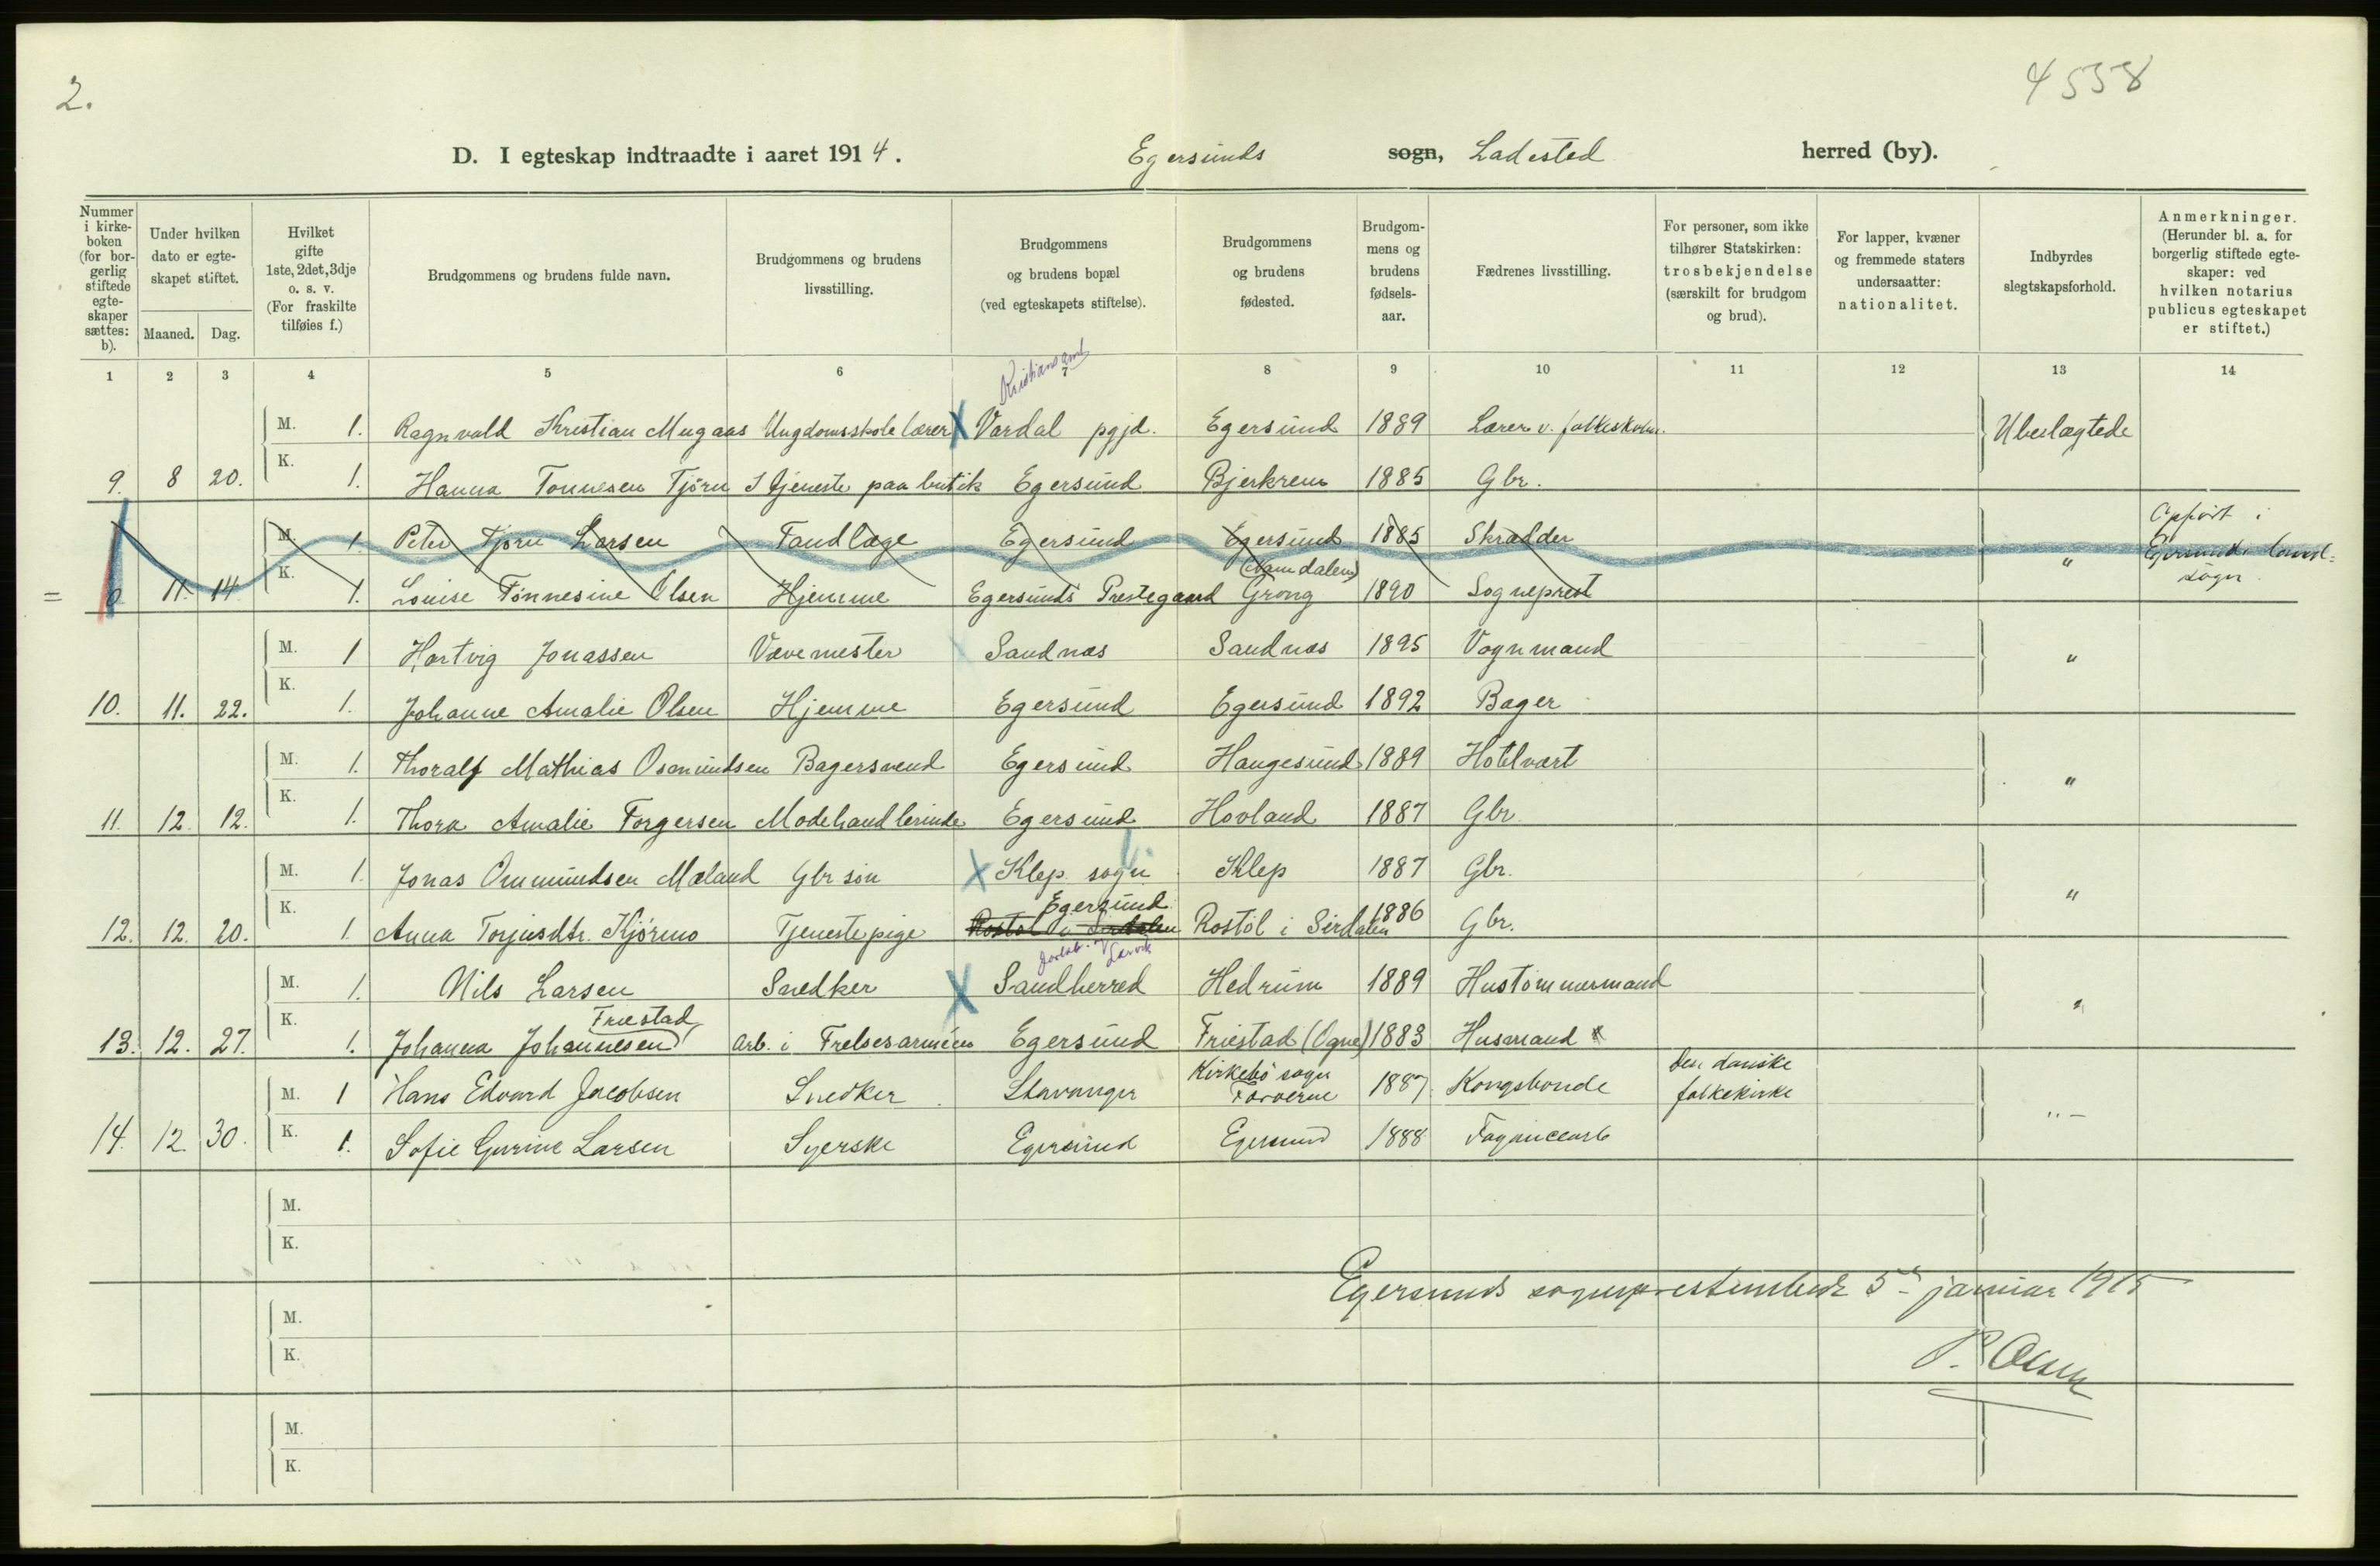 2.
4558
D. I egteskap indtraadte i aaret 1914. Egersunds sogn, Ladested herred (by).
Nummer i kirke-boken (for bor-gerlig stiftede egte-skaper sættes: b).
Under hvilken dato er egte-skapet stiftet.
Maaned. Dag.
Hvilket gifte 1ste, 2det, 3dje o. s. v. (For fraskilte tilføies f.)
Brudgommens og brudens fulde navn.
Brudgommens og brudens livsstilling.
Brudgommens og brudens bopæl (ved egteskapets stiftelse).
Brudgommens og brudens fødested.
Brudgom-mens og brudens fødsels-aar.
Fædrenes livsstilling.
For personer, som ikke tilhører Statskirken: trosbekjendelse (særskilt for brudgom og brud).
For lapper, kvæner og fremmede staters undersaatter: nationalitet.
Indbyrdes slegtskapsforhold.
Anmerkninger. (Herunder bl. a. for borgerlig stiftede egte-skaper: ved hvilken notarius publicus egteskapet er stiftet.)
1 2 3 4 5 6 7 8 9 10 11 12 13 14
Kristians amt
M. 1. Ragnvald Kristian Mugaas Ungdomsskolelærer X Vardal pgjd. Egersund 1889 Lærer v. folkeskolen. Ubeslægtede
9. 8 20. K. 1. Hanna Tonnesen Tjörn I tjeneste paa butik Egersund Bjerkrem 1885 Gbr.
M. 1. Peter Tjörn Larsen Tandlæge Egersund Egersund 1885 Skrædder " Opført i Egersunds land=sogn.
= 0 11. 14 K. 1. Louise Tönnesine Olsen Hjemme Egersunds Prestegaard (Namdalen) Grong 1890 Sogneprest
M. 1 Hartvig Jonassen Vævemester Sandnæs Sandnæs 1895 Vognmand "
10. 11. 22. K. 1. Johanne Amalie Olsen Hjemme Egersund Egersund 1892 Bager
M. 1. Thoralf Mathias Osmundsen Bagersvend Egersund Haugesund 1889 Hotelvært "
11. 12. 12. K. 1. Thora Amalie Torgersen Modehandlerinde Egersund Hovland 1887 Gbr.
M. 1. Jonas Ommundsen Mæland Gbr sön X Klep sogn Klep 1887 Gbr. "
12. 12. 20. K. 1. Anna Torjusdtr. Kjörmo Tjenestepige Rostöl i Sirdalen Egersund Rostöl i Sirdalen 1886 Gbr.
Jarlsb. Larvik
M. 1. Nils Larsen Snedker X Sandherred Hedrum 1889 Hustömmermand "
13. 12. 27. K. 1. Johanna Johannesen Friestad Arb. i Frelsesarméen Egersund Friestad (Ogne) 1883 Husmand
M. 1 Hans Edvard Jacobsen Snedker Stavanger Kirkebö sogn Færøerne 1887. Kongsbonde Den danske folkekirke " –
14. 12. 30. K. 1. Sofie Gurine Larsen Syerske Egersund Egersund 1888
M.
K.
Egersunds sogneprestembede 5te januar 1915
M.
K.
P. Olsen
M.
K.